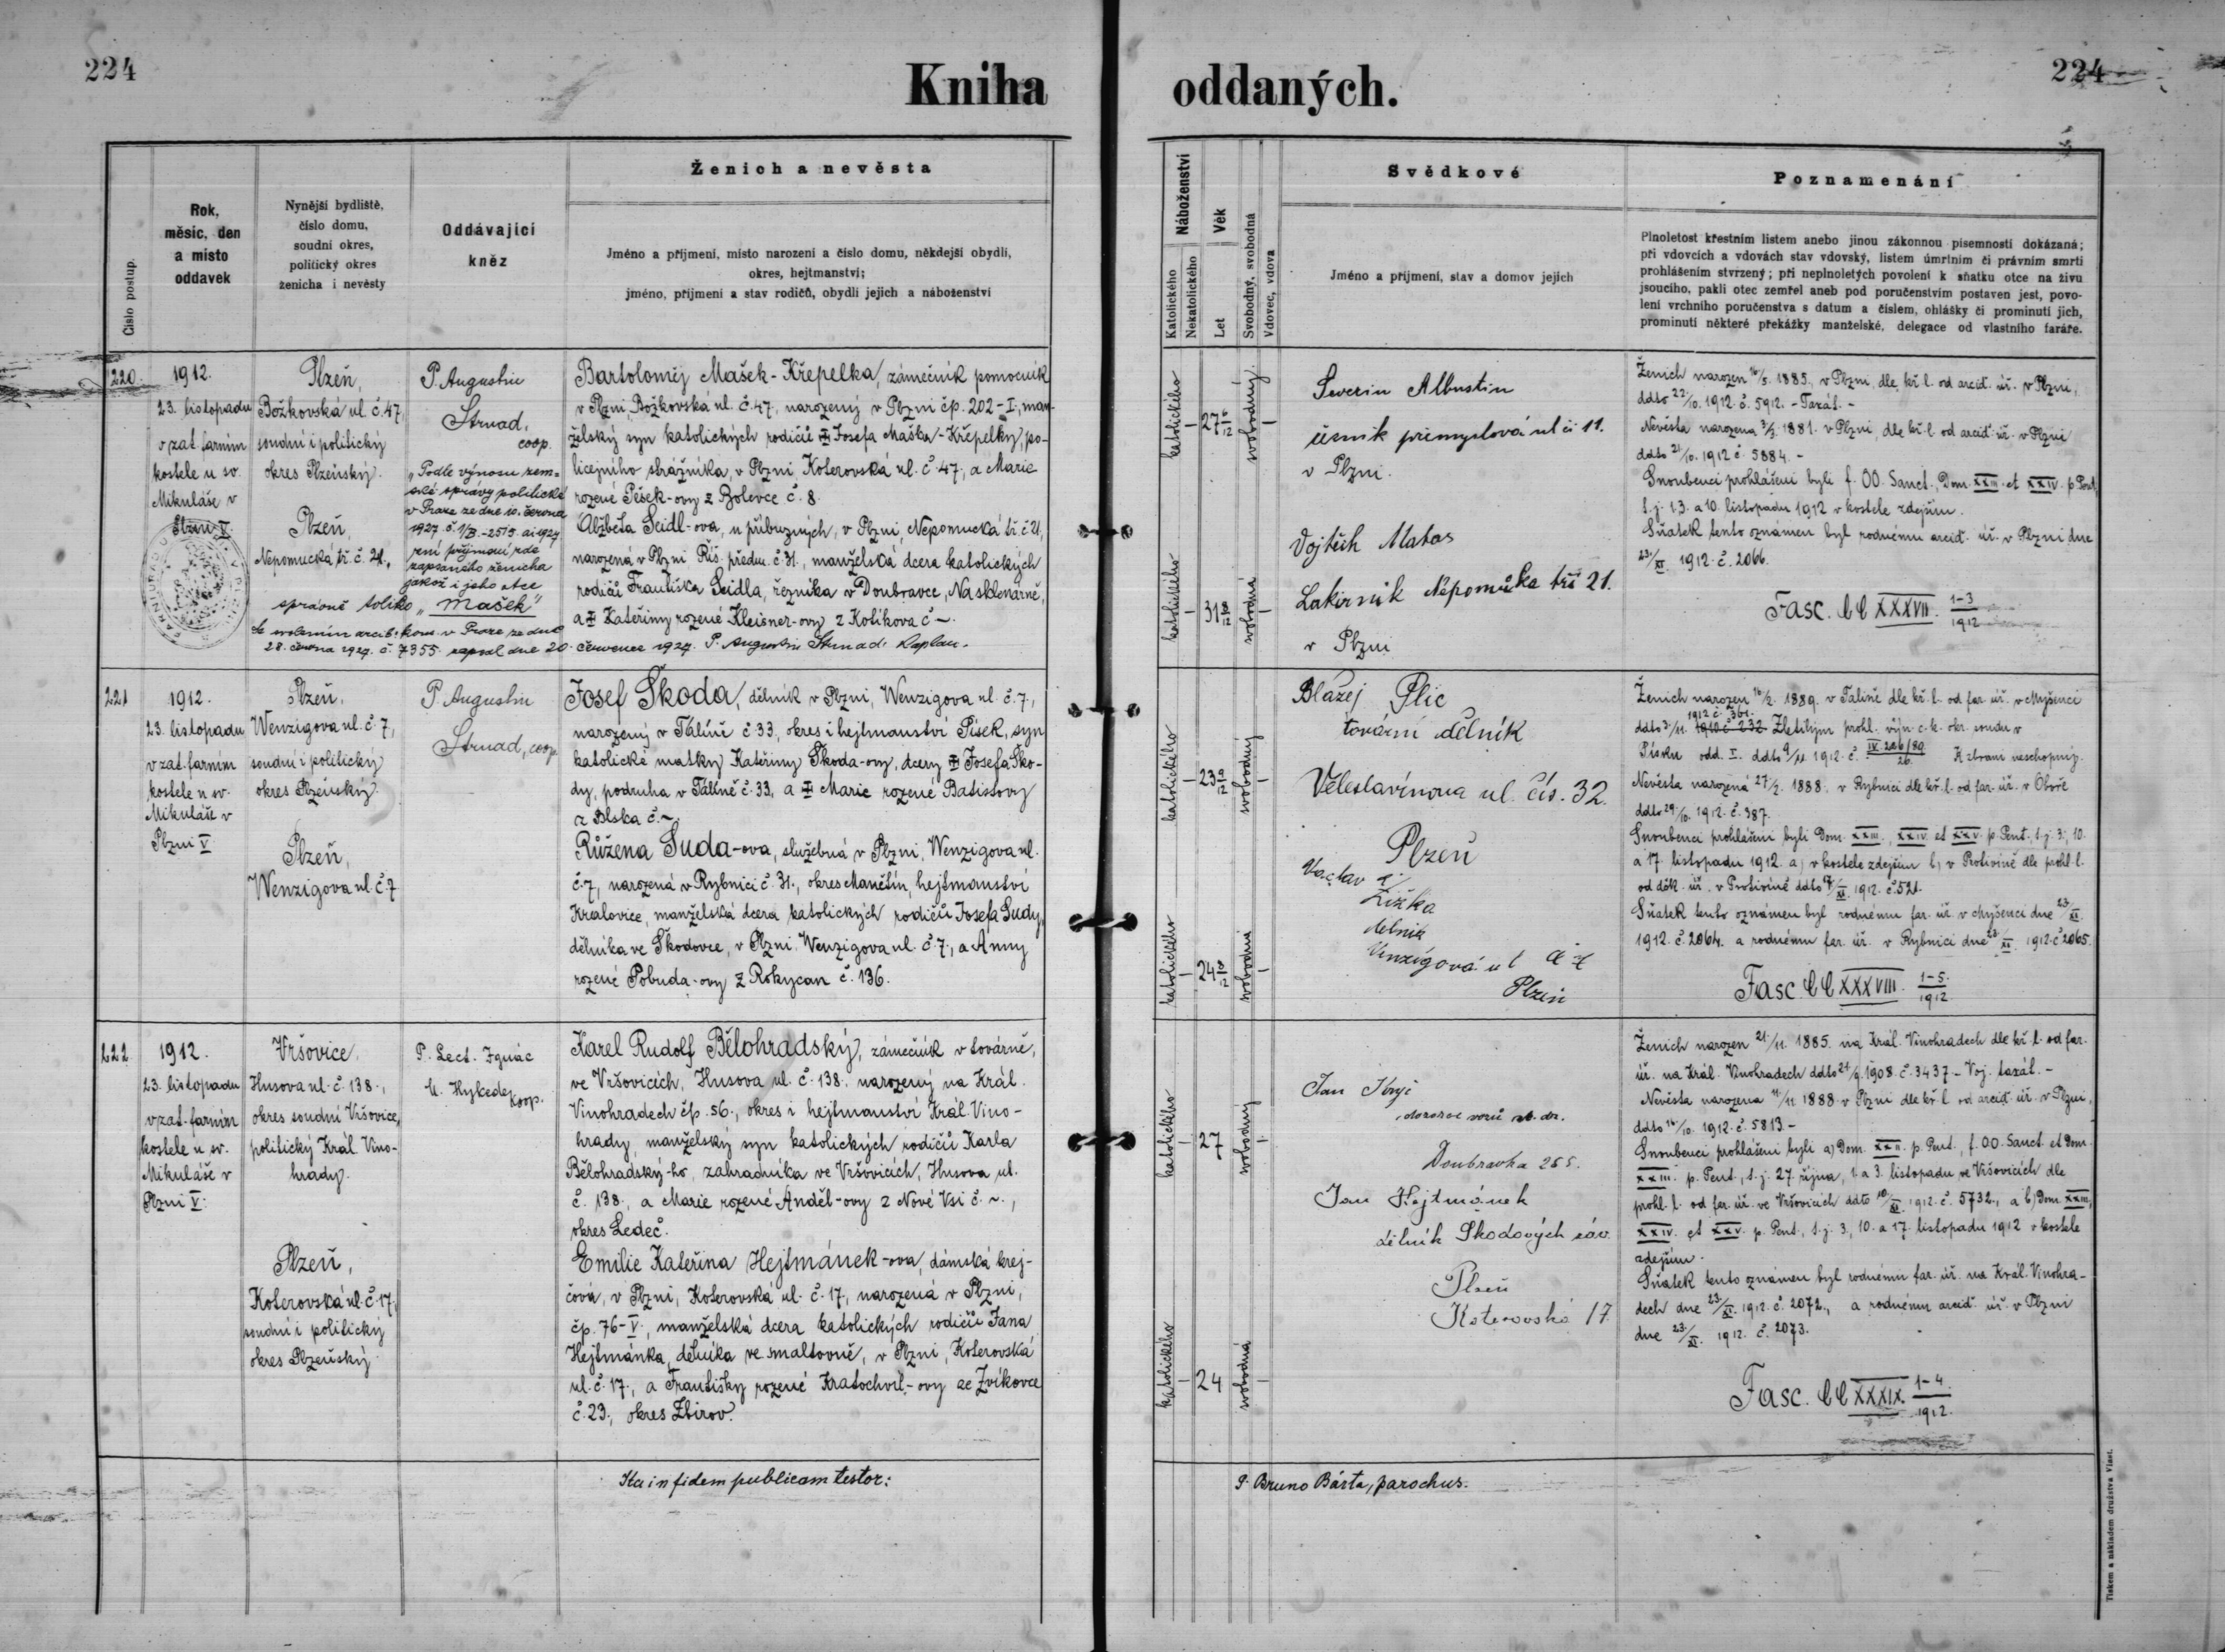 224
Kniha
oddaných.
224
Číslo postup.
Rok,
měsíc, den
a místo
oddavek
Nynější bydliště,
číslo domu,
soudní okres,
politický okres
ženicha i nevěsty
Oddávající
kněz
Ženich a nevěsta
Jméno a příjmení, místo narození a číslo domu, někdejší obydlí,
okres, hejtmanství;
jméno, příjmení a stav rodičů, obydlí jejich a náboženství
Náboženství
Katolického
Nekatolického
Věk
Let
Svobodný, svobodná
Vdovec, vdova
Svědkové
Jméno a příjmení, stav a domov jejich
Poznamenání
Plnoletost křestním listem anebo jinou zákonnou písemností dokázaná;
při vdovcích a vdovách stav vdovský, listem úmrtním či právním smrti
prohlášením stvrzený; při neplnoletých povolení k sňatku otce na živu
jsoucího, pakli otec zemřel aneb pod poručenstvím postaven jest, povo-
lení vrchního poručenstva s datum a číslem, ohlášky či prominutí jich,
prominutí některé překážky manželské, delegace od vlastního faráře.
220.
1912.
23. listopadu
v zat. farním
kostele u sv.
Mikuláše v
Plzni V.
Plzeň,
Božkovská ul. č. 47,
soudní i politický
okres Plzeňský.
Plzeň,
Nepomucká tř. č. 21.,
P. Augustin
Strnad,
coop.
„Podle výnosu zem-
ské správy politické
v Praze ze dne 10. června
1927 č. 1/B.-2519. ai 1927
zní příjmení zde
zapsaného ženicha
jakož i jeho otce
správně toliko „Mašek"
Se svolením arcib. kons. v Praze ze dne
28. června 1927. č. 7355 zapsal dne 20. července 1927. P. Augustin Strnad. Kaplan.
Bartoloměj Mašek-Křepelka, zámečník pomocník
v Plzni, Božkovská ul. č. 47, narozený v Plzni čp. 202-I., man-
želský syn katolických rodičů Josefa Maška-Křepelky, po-
licejního strážníka, v Plzni Koterovská ul. č. 47, a Marie
rozené Pěšek-ovy z Bolevce č. 8.
Alžběta Seidl-ova, u příbuzných, v Plzni, Nepomucká tř. č. 21,
narozená v Plzni Říš. předm. č. 31., manželská dcera katolických
rodičů Františka Seidla, řezníka v Doubravce, Na sklenárně,
a Kateřiny rozené Kleisner-ovy z Kotíkova č ~.
katolického
27 6/12
svobodný
katolického
31 8/12
svobodná
Severin Albustin
úsník průmyslová ul či 11.
v Plzni.
Vojtěch Matas
Lakirník Nepomůka tří 21.
v Plzni
Ženich narozen 16/5. 1885., v Plzni, dle kř. l. od arciď. úř. v Plzni,
ddto 22/10. 1912. č. 5912. - Taxát. -
Nevěsta narozena 3/3. 1881. v Plzni, dle kř. l. od arciď. úř. v Plzni
ddto 21/10. 1912 č. 5884. -
Snoubenci prohlášeni byli f. OO. Sanct., Dom. XXIII. et XXIV. p. Pent.,
t. j. 1. 3. a 10. listopadu 1912 v kostele zdejším.
Sňatek tento oznámen byl rodnému arciď. úř. v Plzni dne
23./XI. 1912. č. 2066.
Fasc. CC XXXVII. 1-3/1912
221
1912.
23. listopadu
v zat. farním
kostele u sv.
Mikuláše v
Plzni V
Plzeň,
Wenzigova ul. č. 7,
soudní i politický
okres Plzeňský.
Plzeň,
Wenzigova ul. č. 7
P. Augustin
Strnad, coop.
Josef Škoda, dělník v Plzni, Wenzigova ul. č. 7.,
narozený v Tálíně č. 33, okres i hejtmanství Písek, syn
katolické matky Kateřiny Škoda-ovy, dcery Josefa Ško-
dy, podruha v Tálíně č. 33, a Marie rozené Batistovy
z Blska č. ~.
Růžena Suda-ova, služebná v Plzni, Wenzigova ul.
č. 7, narozená v Rybnici č. 31., okres Manětín, hejtmanství
Kralovice, manželská dcera katolických rodičů Josefa Sudy,
dělníka ve Škodovce, v Plzni Wenzigova ul. č. 7, a Anny
rozené Pobuda-ovy z Rokycan č. 136.
katolického
23 9/12
svobodný
katolického
24 8/12
svobodná
Blažej Plic
tovární dělník
Veleslavínova ul. čís. 32.
Plzeň
Vaclav Žižka
dělník
Venzigová ul č 7
Plzeň
Ženich narozen 16/2. 1889. v Talině dle kř. l. od far. úř. v Myšenci
ddto 3./11. 1910 č. 232 1912 č. 361. Zletilým prohl. výn. c. k. okr. soudu v
Písku odd. I. ddto 9/11 1912. č. IV 286/89 26. K zbrani neschopný.
Nevěsta narozená 27/2. 1888. v Rybnici dle kř. l. od far. úř. v Oboře
ddto 29/10. 1912. č. 387.
Snoubenci prohlášeni byli Dom. XXIII., XXIV. et XXV. p. Pent., t. j. 3., 10.
a 17. listopadu 1912. a) v kostele zdejším b) v Protivíně dle prohl. l.
od děk. úř. v Protivíně ddto XI. 1912. č. 521.
Sňatek tento oznámen byl rodnému far. úř. v Myšenci dne 23./XI.
1912. č. 2064. a rodnému far. úř. v Rybnici dne 23./XI. 1912. č. 2065.
Fasc. CC XXXVIII. 1-5./1912
222
1912.
23. listopadu
v zat. farním
kostele u sv.
Mikuláše v
Plzni V.
Vršovice,
Husova ul. č. 138.,
okres soudní Vršovice,
politický Král. Vino-
hrady.
Plzeň,
Koterovská ul. č. 17,
soudní i politický
okres Plzeňský
P. Lect. Ignác
M. Hykede,
koop.
Karel Rudolf Bělohradský, zámečník v továrně,
ve Vršovicích, Husova ul. č. 138. narozený na Král.
Vinohradech čp. 56., okres i hejtmanství Král. Vino-
hrady, manželský syn katolických rodičů Karla
Bělohradský-ho, zahradníka ve Vršovicích, Husova ul.
č. 138., a Marie rozené Anděl-ovy z Nové Vsi č. ~.,
okres Ledeč.
Emilie Kateřina Hejtmánek-ova, dámská krej-
čová, v Plzni, Koterovská ul. č. 17, narozená v Plzni,
čp. 76-V., manželská dcera katolických rodičů Jana
Hejtmánka, dělníka ve smaltovně, v Plzni, Koterovská
ul. č. 17, a Františky rozené Kratochvíl-ovy ze Zvíkovce
č. 23., okres Zbirov.
katolického
27
svobodný
katolického
24
svobodná
Jan
dozorce vozů st. dr.
Doubravka 265.
Jan Hejtmánek
dělník Škodových záv.
Plzeň
Koterovská 17
Ženich narozen 21./11. 1885. na Král. Vinohradech dle kř. l. od far.
úř. na Král. Vinohradech ddto 21/9. 1908. č. 3437. - Voj. taxát. -
Nevěsta narozena 11/11 1888. v Plzni dle kř. l. od arciď. úř. v Plzni,
ddto 16/10. 1912. č. 5813 -
Snoubenci prohlášeni byli a) Dom. XXII. p. Pent., f. OO. Sanct. et Dom.
XXIII. p. Pent., t. j. 27. října, 1. a 3. listopadu ve Vršovicích dle
prohl. l. od far. úř. ve Vršovicích ddto 10/XI. 1912. č. 5732., a b) Dom. XXIII.,
XXIV. et XXV. p. Pent., t. j. 3., 10. a 17. listopadu 1912 v kostele
zdejším.
Sňatek tento oznámen byl rodnému far. úř. na Král. Vinohra-
dech dne 23./XI. 1912. č. 2072., a rodnému arciď. úř. v Plzni
dne 23./XI. 1912. č. 2073.
Fasc. CC XXXIX. 1-4./1912.
Ita in fidem publicam testor:
P. Bruno Bárta, parochus.
Tiskem a nákladem družstva Vlast.